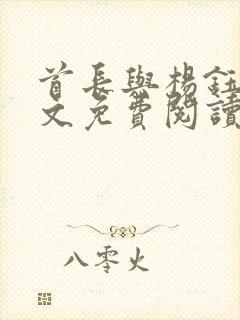 首長與楊鈺
文免費閱讀
八零火